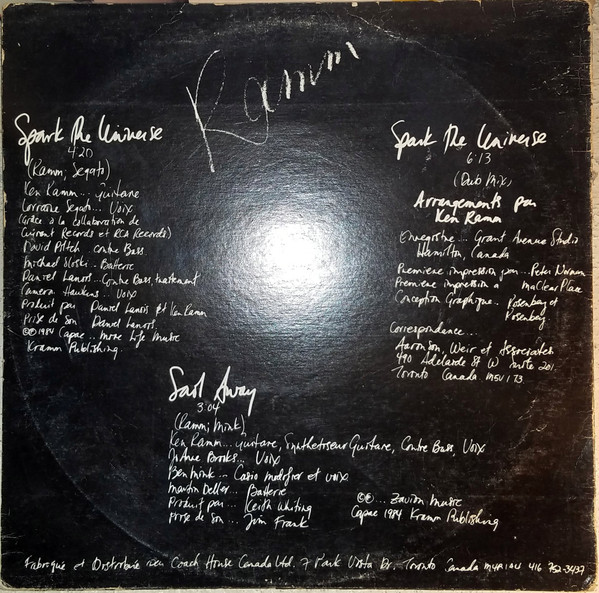 Ramm
Spark The Universe
4:20
(Ramm; Segato)
Ken Ramm... Guitare
Lorraine Segato... Voix
(Grâce à la collaboration de
Current Records et RCA Records)
David Piltch Contre Bass
Michael Sloski.. Batterie
Daniel Lanois...Contre Bass, traitement
Camera Hawkins... Voix
Produit par Daniel Lanois et Ken Ramm
Prise de Son Daniel Lanois
©℗ 1984 Capac... More Life Music
Kramm Publishing.
Spark The Universe
6:13
(Dub Mix)
Arrangements par
Ken Ramm
Enregistre... Grant Avenue Studio
Hamilton, Canada
Premiere impression par... Peter Norman
Premiere impression a MaClear Place
Conception Graphique.. Rosenberg et
Rosenberg
Correspondance...
Aaronson, Weir et Associates
490 Adelaide St W suite 201
Toronto Canada. M5V 1T3
Sail Away
3:04
(Ramm; Mink)
Ken Ramm... Guitare, Synthetiseur Guitare, Contre Bass, Voix
Brooks... Voix
Ben Mink... Casio modifier et voix
Martin Deller... Batterie
Produit par... Keith Whiting
Prise de Son... Jim Frank
©℗... Zavion Music
Capac 1984 Kramm Publishing
Fabrique et Distribue Coach House Canada Ltd. 7 Park Vista Dr. Toronto Canada 416 752-3437